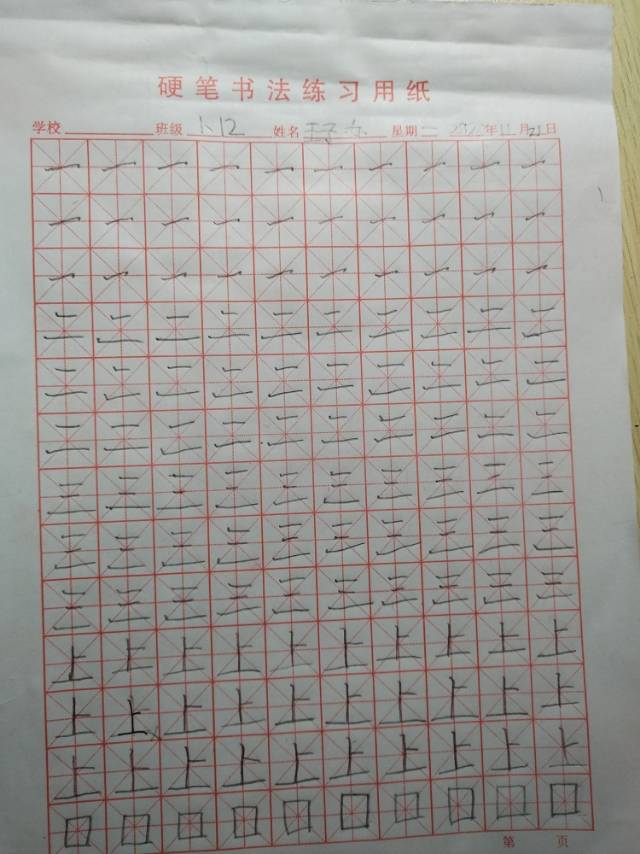 硬笔书法练习用纸
学校 班级 1-12 姓名 星期二 年 月 日
一 一 一 一 一 一 一 一 一 一
一 一 一 一 一 一 一 一 一 一
一 一 一 一 一 一 一 一 一 一
二 二 二 二 二 二 二 二 二 二
二 二 二 二 二 二 二 二 二 二
二 二 二 二 二 二 二 二 二 二
三 三 三 三 三 三 三 三 三 三
三 三 三 三 三 三 三 三 三 三
三 三 三 三 三 三 三 三 三 三
上 上 上 上 上 上 上 上 上 上
上 上 上 上 上 上 上 上 上 上
上 上 上 上 上 上 上 上 上 上
口 口 口 口 口 口 口 口 口 口
第 页